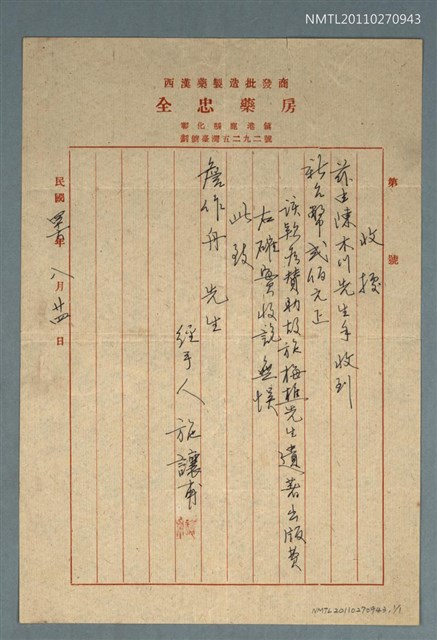 NMTL20110270943
西漢藥製造批發商
全忠藥房
彰化縣鹿港鎮
劃撥臺灣五二九二號
第 號
收據
茲由陳木川先生手收到
新台幣弍佰元正
該款為贊助故施梅樵先生遺著出版費
右確實收訖無悞
此致
詹作舟 先生
經手人 施讓甫
民國 年八月廿四日
NMTL20110270943 1/1